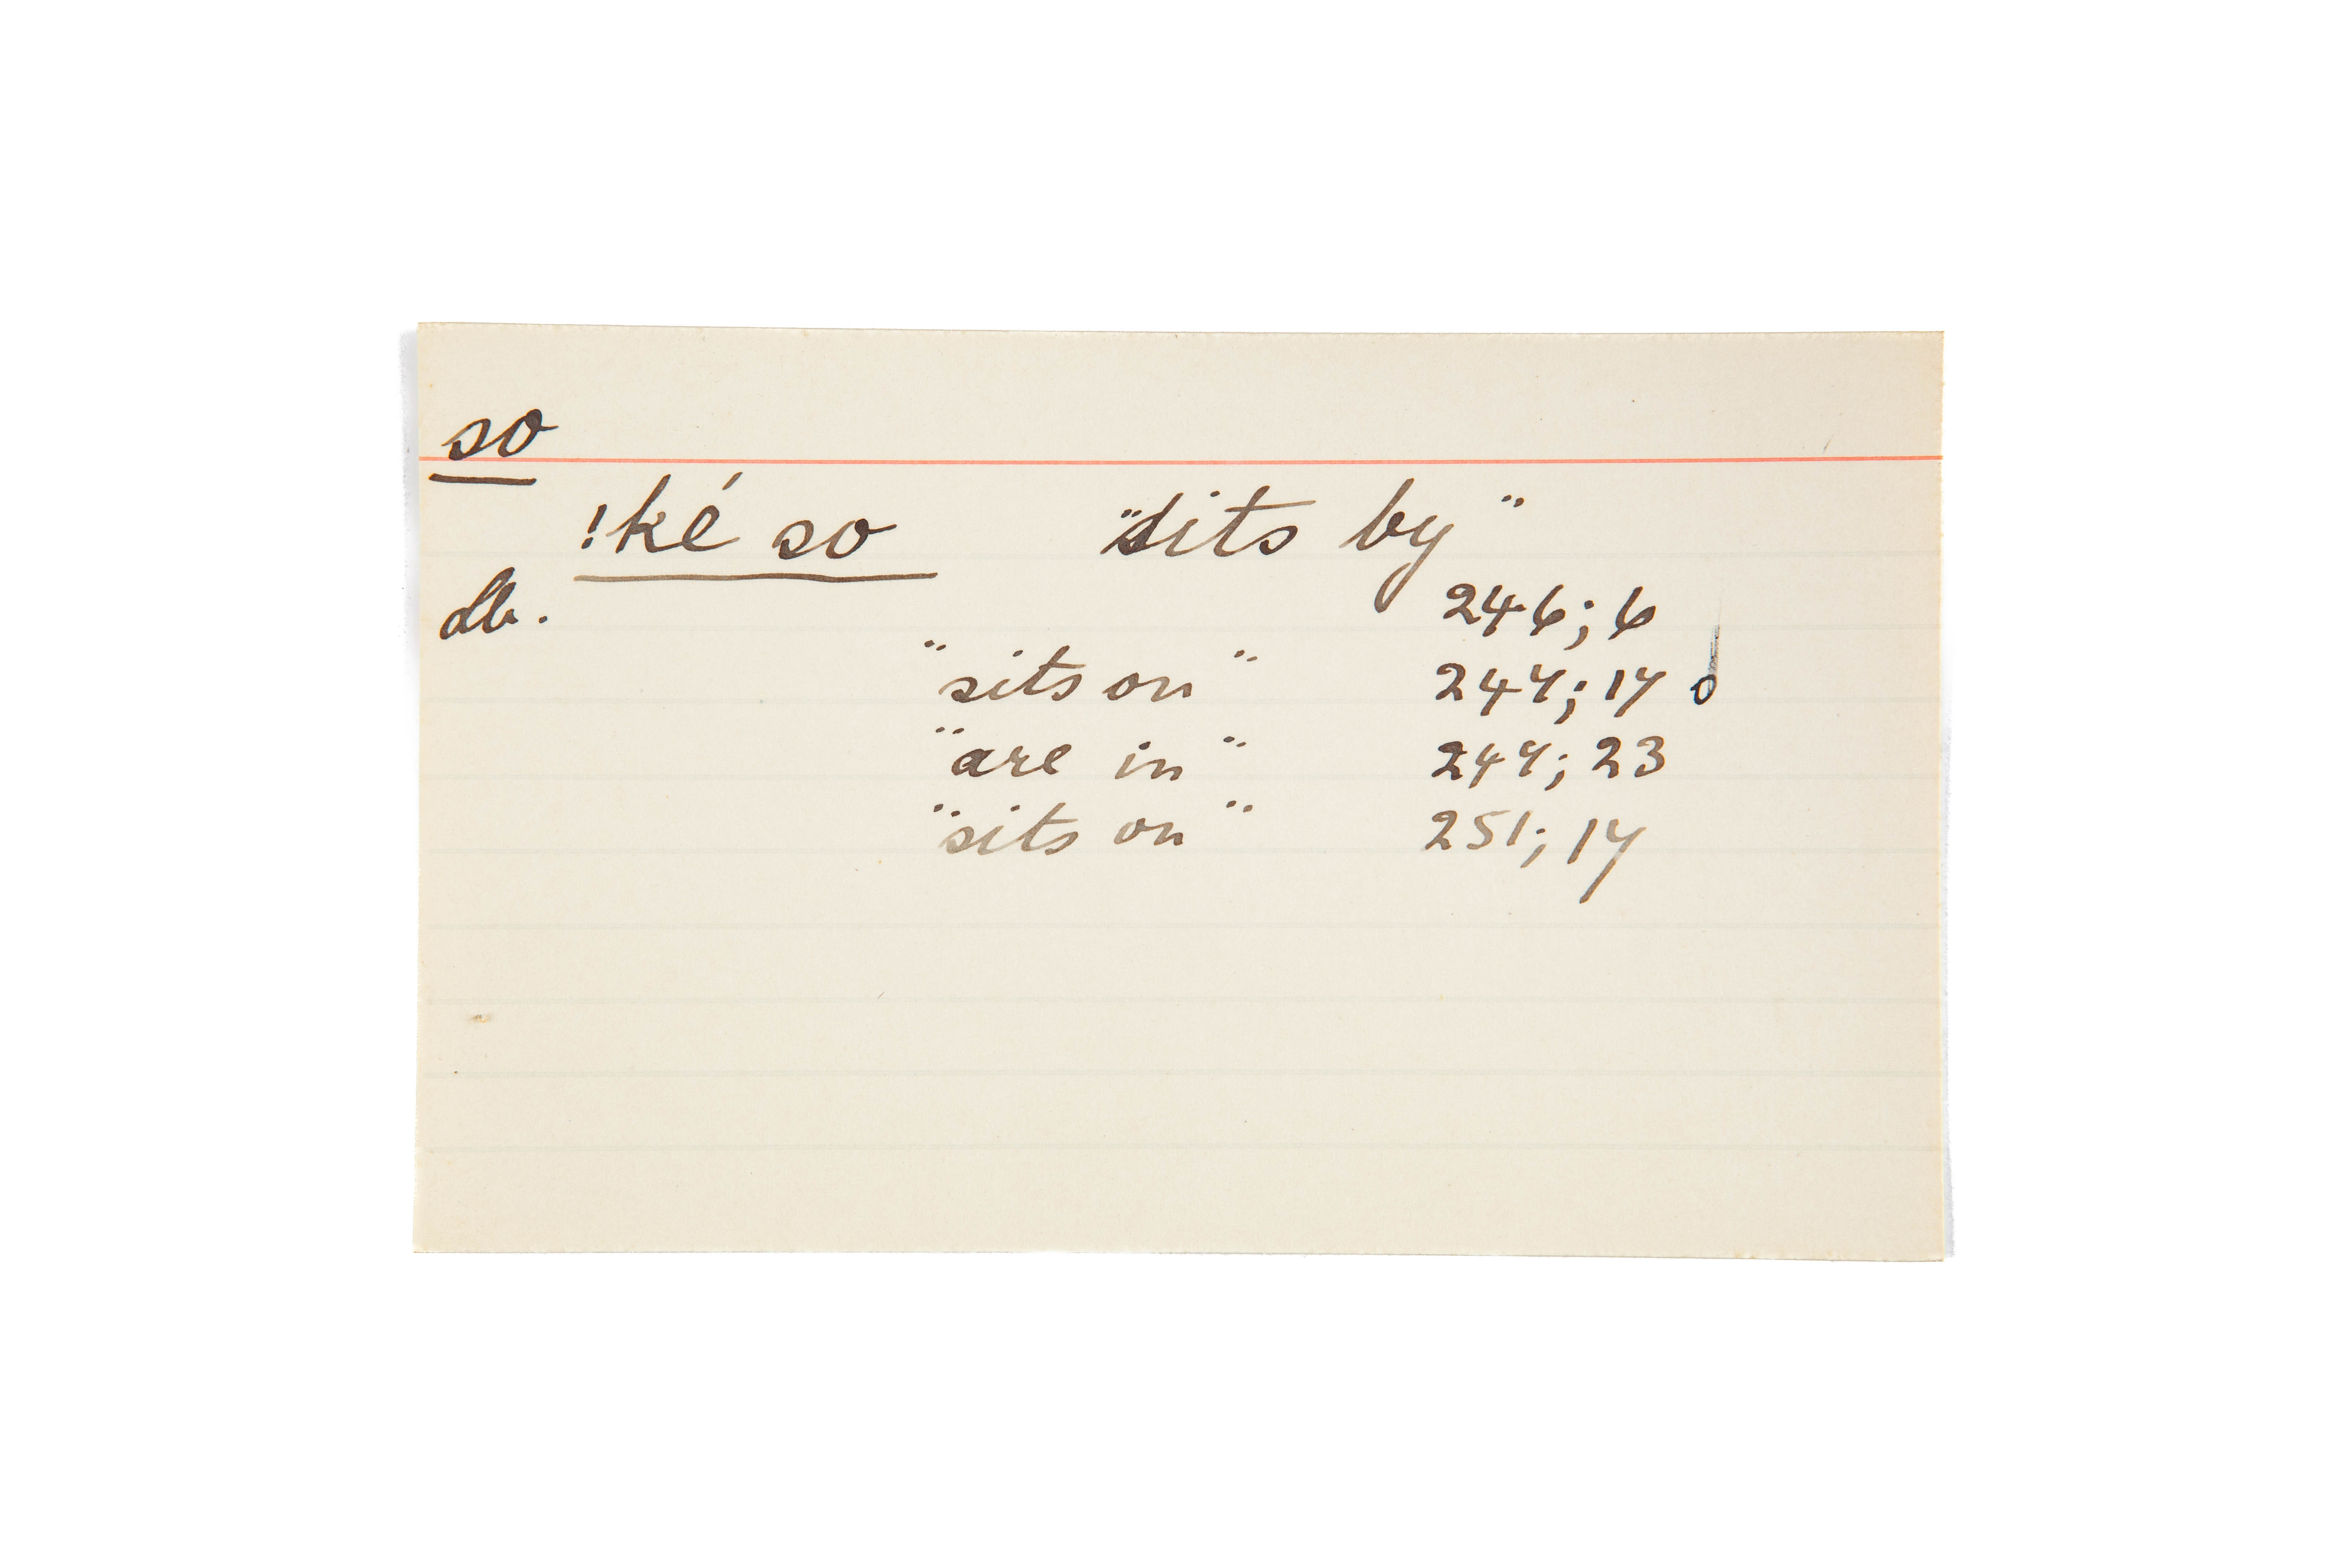 so
!ké so "sits by"
db. 246; 6
"sits on" 247; 17
"are in" 247; 23
"sits on" 251; 17